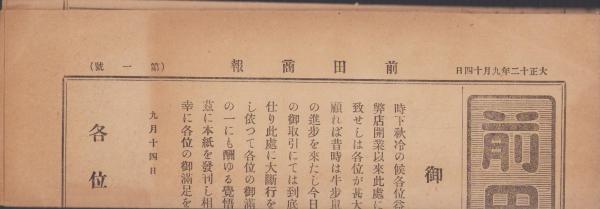 大正十二年九月十四日
前田商報
（第一號）
前田
御
時下秋冷の候各位益
弊店開業以來此處に
致せしは各位が甚大
顧れば昔時は牛步鼠
の進步を來たし今日
の御取引にては到底
仕り此處に大斷行を
し依つて各位の御滿
の一にも酬ゆる覺悟
玆に本紙を發刊し相
幸に各位の御滿足を
九月十四日
各位